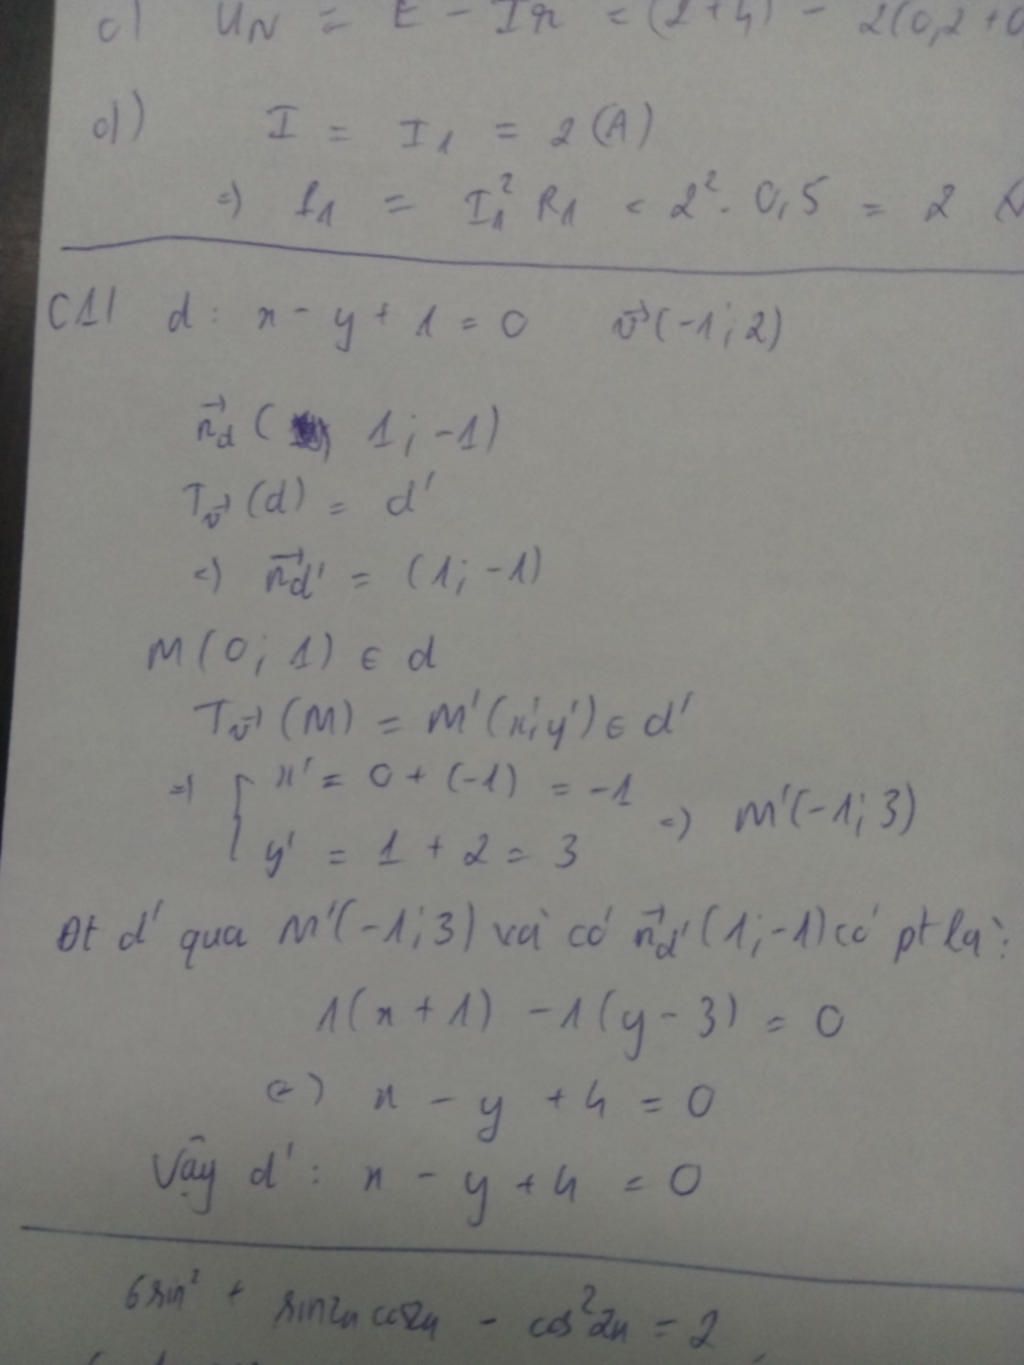 c) U_N = E - Ir = (2+4) - 2(0,2+0
d) I = I₁ = 2 (A)
=) P₁ = I₁² R₁ = 2² . 0,5 = 2
C1) d: x - y + 1 = 0 v⃗(-1; 2)
n⃗_d ( 1; -1)
T_v⃗ (d) = d'
=) n⃗_d' = (1; -1)
M(0; 1) ∈ d
T_v⃗ (M) = M'(x';y') ∈ d'
=) { x' = 0 + (-1) = -1
y' = 1 + 2 = 3 =) M'(-1; 3)
Đt d' qua M'(-1; 3) và có n⃗_d' (1; -1) có pt là:
1(x + 1) - 1(y - 3) = 0
(=) x - y + 4 = 0
Vậy d' : x - y + 4 = 0
6sin² + sin2x cos2x - cos²2x = 2